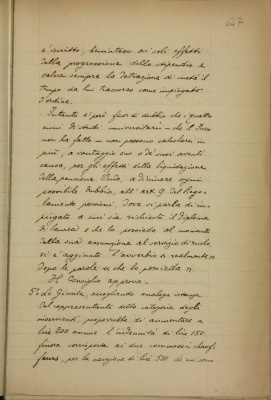 647
è iscritto, beninteso ai soli effetti
della progressione dello stipendio e
salva sempre la detrazione di metà il
tempo da lui trascorso come impiegato
d'ordine.
Intanto è però fuor di dubbio che i quattro
anni di studi universitari - che il
non ha fatto - non possono valutarsi in
più, a vantaggio suo o de' suoi aventi
causa, per gli effetti della liquidazione
della pensione. Onde, a eliminare ogni
possibile dubbio, all'art. 9 del Rego-
lamento pensioni, dove si parla di im-
piegato a cui sia richiesto il diploma
di laurea e che lo possieda al momento
della sua assunzione al servizio di ruolo,
si è aggiunto l'avverbio "realmente"
dopo le parole "che lo possieda".
Il Consiglio approva.
5° La Giunta, accogliendo analoga istanza
del rappresentante della categoria degli
inservienti, proporrebbe di aumentare a
lire 200 annue l'indennità di lire 150
finora corrisposta ai due commessi chauf-
feurs, per la cauzione di lire 500 di